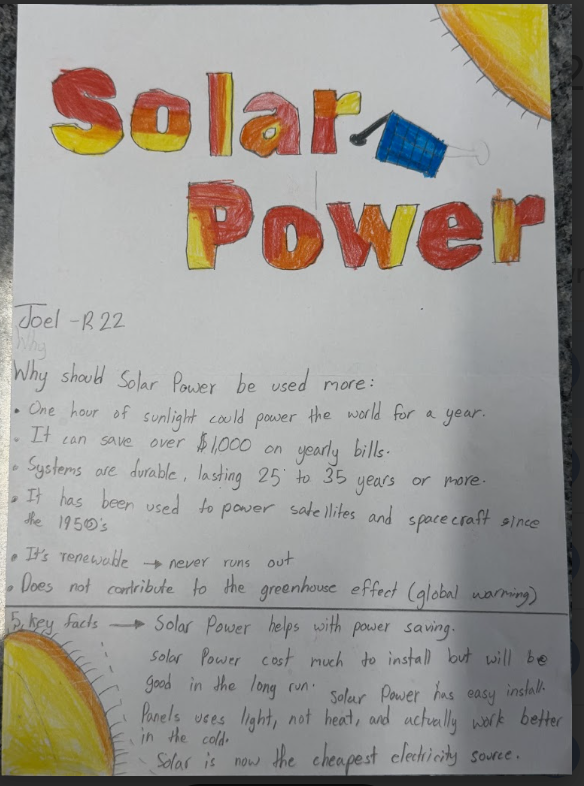 Solar
Power
Joel - R 22
Why
Why should Solar Power be used more:
• One hour of sunlight could power the world for a year.
• It can save over $1,000 on yearly bills.
• Systems are durable, lasting 25 to 35 years or more.
• It has been used to power satellites and spacecraft since
the 1950's
• It's renewable → never runs out
• Does not contribute to the greenhouse effect (global warming)
5 key facts → Solar Power helps with power saving.
Solar Power cost much to install but will be
good in the long run. Solar Power has easy install.
Panels uses light, not heat, and actually work better
in the cold.
Solar is now the cheapest electricity source.